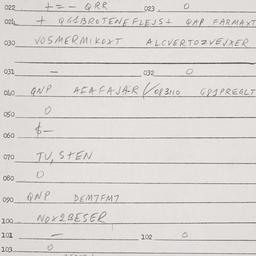 022 + = - QRR 023 0
024 + QG1BROTENEFLEJS+ QAP FARMAXT
030 VOSMERMIKOXT ALCVERTOZVEJXER
031 - 032 0
040 QNP AIAFAJAER / 083110 G81PREGLT
050 0
060 $-
070 TU, STEN
080 0
090 QNP DEM7FM7
100 NOX2BESER
101 - 102 0
103 0